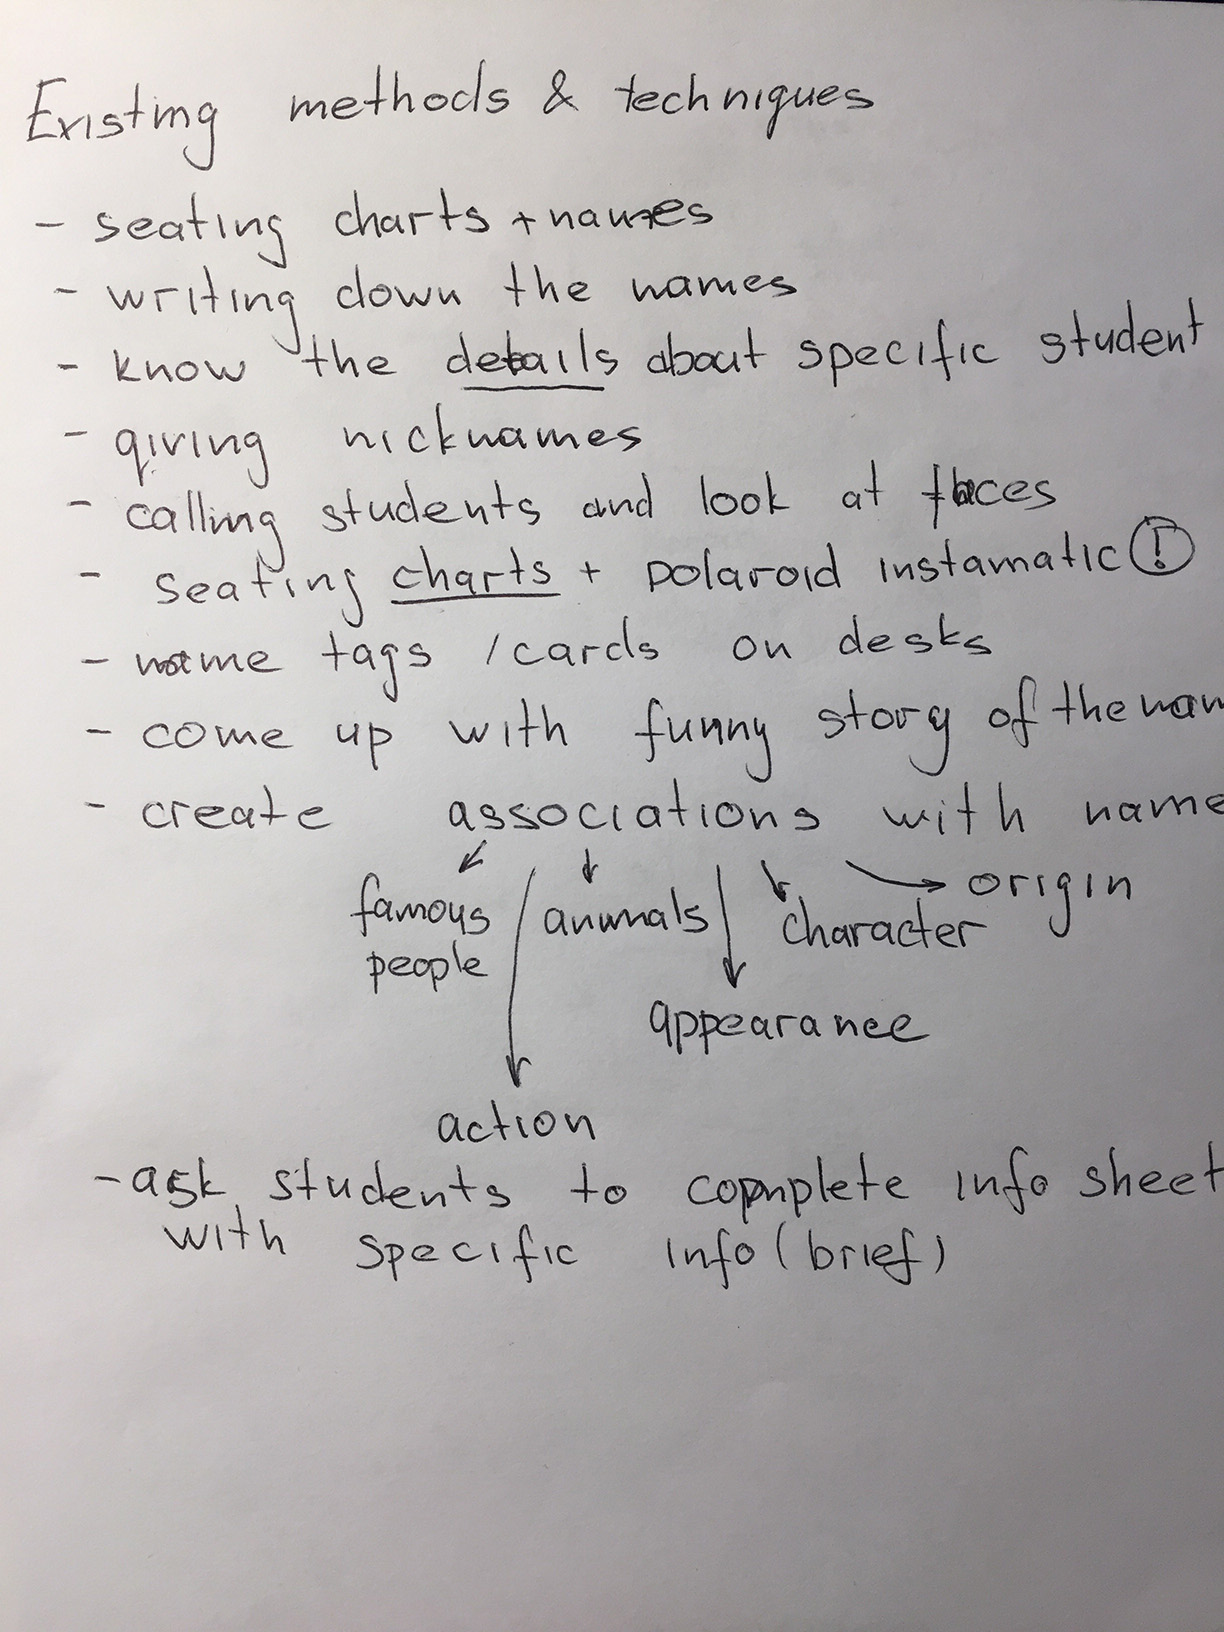 Existing methods & techniques
- seating charts + names
- writing down the names
- know the details about specific student
- giving nicknames
- calling students and look at faces
- seating charts + polaroid instamatic !
- name tags / cards on desks
- come up with funny story of the nam
- create associations with name
origin
famous animals character
people
appearance
action
- ask students to complete info sheet
with specific info (brief)